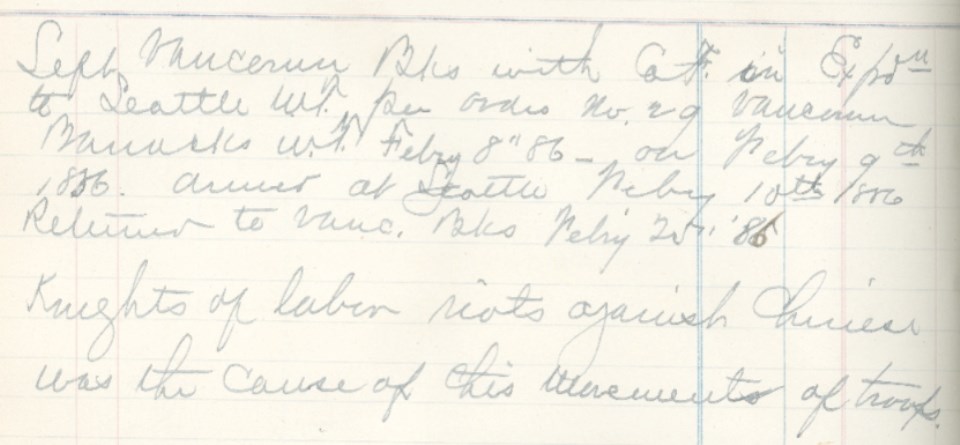 Left Vancouver Bks with Co F. in Expdn
to Seattle W.T. per orders No. 29 Vancouver
Barracks W.T. Febry 8" 86 - on Febry 9th
1886. arrived at Seattle Febry 10th 1886
Returned to Vanc. Bks Febry '86
Knights of labor riots against Chinese
was the cause of this movements of troops.